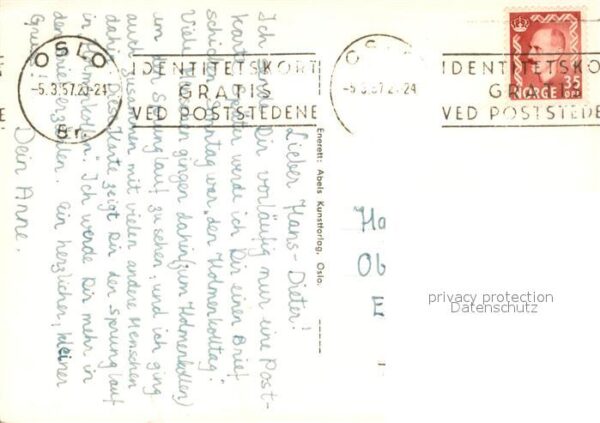 OSLO
-5.3.57.23-24
Br.
IDENTITETSKORT
GRATIS
VED POSTSTEDENE
OSLO
-5.3.57.2 -24
IDENTITETSKO
GRA
VED POSTSTEDE
NORGE
35
ØRE
Lieber Hans-Dieter!
Ich Dir vorläufig nur eine Post-
karte, später werde ich Dir einen Brief
schicken. Sonntag war „der Holmenkolltag".
Viele Menschen gingen dahin (zum Holmenkollen)
um den Sprunglauf zu sehen, und ich ging
auch zusammen mit vielen andere Menschen
dahin. Diese Karte zeigt Dir der Sprunglauf
in „Holmenkollen". Ich werde Dir mehr in
den Brief erzählen. Ein herzlicher, kleiner
Gruss!
Dein Anne.
Enerett: Abels Kunstforlag, Oslo.
Ha
Ob
E
privacy protection
Datenschutz